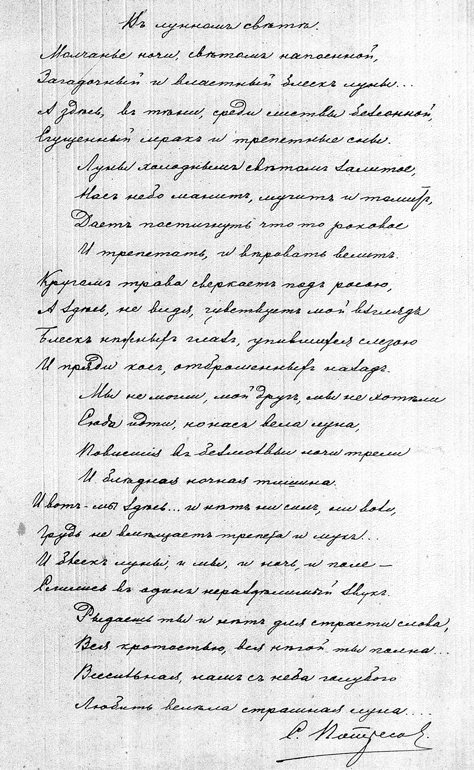 Въ лунномъ свѣтѣ.
Молчанье ночи, свѣтомъ напоенной,
Загадочный и властный блескъ луны...
А здѣсь, въ тѣни, среди листвы безсонной,
Сгущенный мракъ и трепетные сны.
Луны холоднымъ свѣтомъ залитое,
Насъ небо манитъ, мучитъ и томитъ,
Даетъ постигнуть что то роковое
И трепетать, и вѣровать велитъ.
Кругомъ трава сверкаетъ подъ росою,
А здѣсь, не видя, чувствуетъ мой взглядъ
Блескъ нѣжныхъ глазъ, упившихся слезою
И пряди косъ, отброшенныхъ назадъ.
Мы не могли, мой другъ, мы не хотѣли
Сюда идти, но насъ вела луна,
въ безмолвьи ночи трели
И блѣдная ночная тишина.
И вотъ - мы здѣсь... и нѣтъ ни силъ, ни воли,
Грудь не вмѣщаетъ трепета и мукъ...
И блескъ луны, и мы, и ночь, и поле —
Слились въ одинъ нераздѣлимый звукъ.
Рыдаешь ты и нѣтъ для страсти слова,
Вся кротостью, вся нѣгой ты полна...
Всесильная, намъ съ неба голубого
Любить велѣла страшная луна....
С.